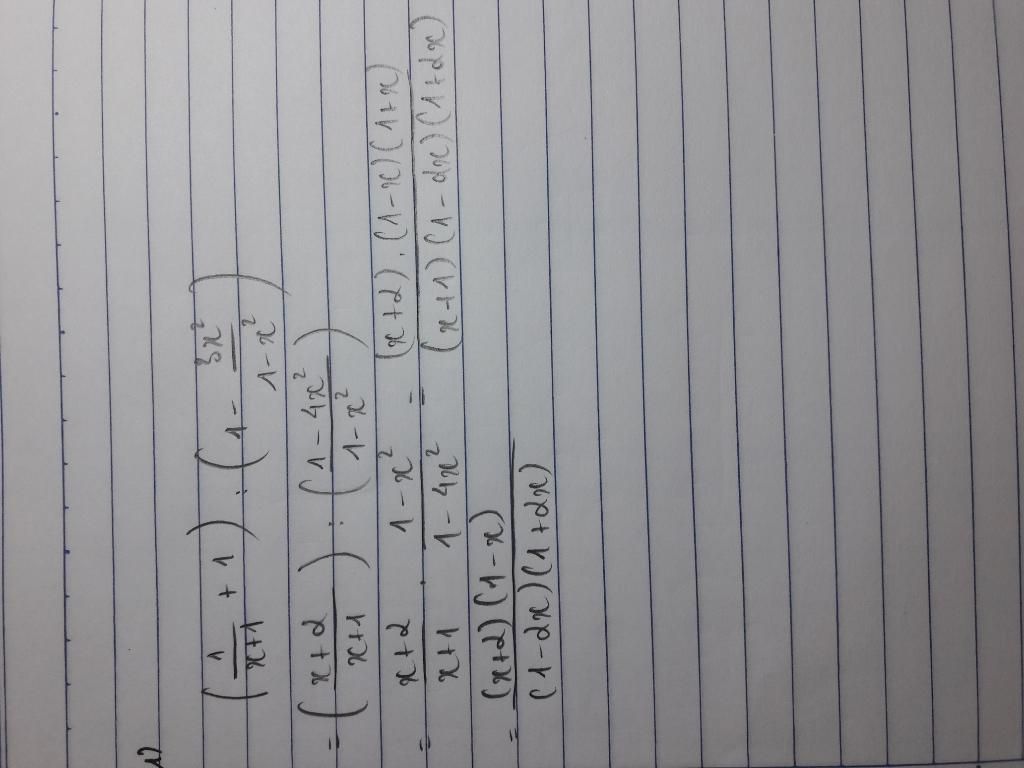 1)
(1/(x+1) + 1) : (1 - 3x²/(1-x²))
= ((x+2)/(x+1)) : ((1-4x²)/(1-x²))
= (x+2)/(x+1) · (1-x²)/(1-4x²) = ((x+2).(1-x)(1+x))/((x+1)(1-2x)(1+2x))
= ((x+2)(1-x))/((1-2x)(1+2x))